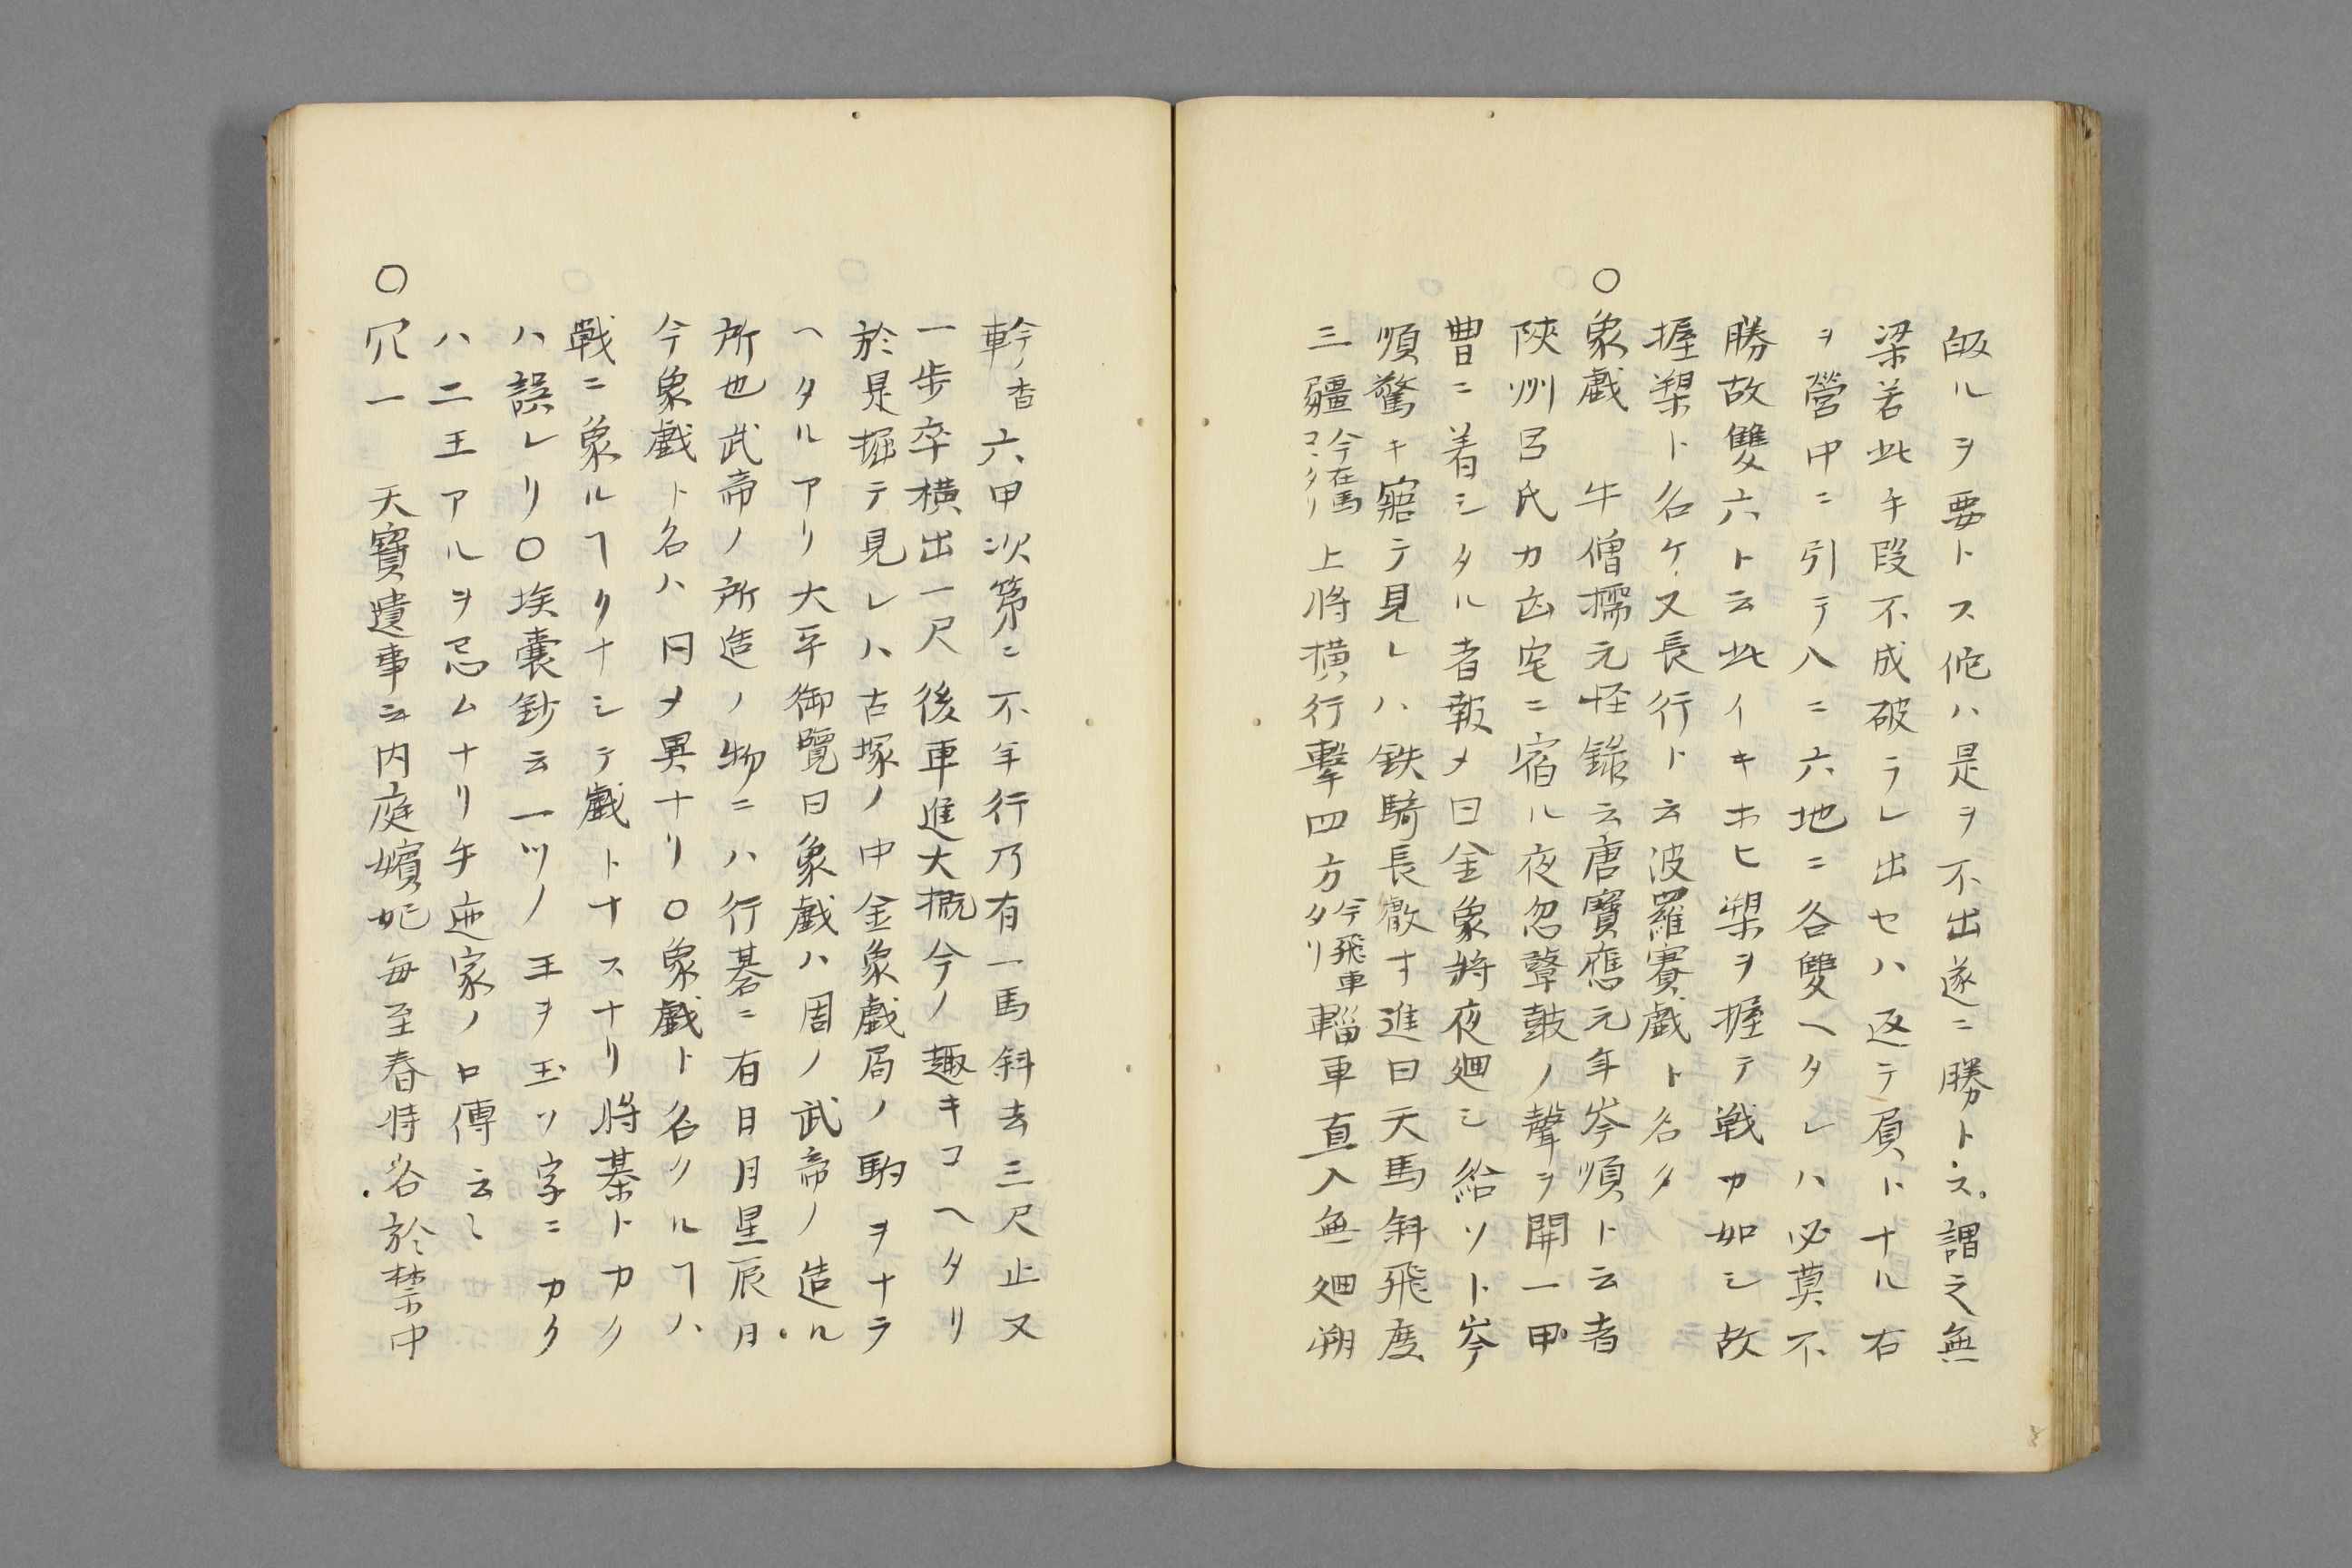 皈ルヲ要トス佗ハ是ヲ不出遂ニ勝トス謂之無
梁若此午段不成破ラレ出セハ返テ負トナル右
ヲ營中ニ引テ入ニ六地ニ各雙ヘタレハ必莫不
勝故雙六ト云此イキホヒ槊ヲ握テ戦カ如シ故
握槊ト名ケ又長行ト云波羅賽戯ト名ク
〇象戯 牛僧孺元怪錄云唐寳應元年岑順ト云者
陜州呂氏カ凶宅ニ宿ル夜忽鼙鼓ノ聲ヲ聞一甲
曹ニ着シタル者報メ曰金象將夜廽シ給ソト岑
順驚キ寤テ見レハ鉄騎長敵す進曰天馬斜飛度
三疆今在馬コヽタリ上將横行擊四方今飛車タリ輜車直入無廽朔
今ノ香車六甲次第ニ不乍行乃有一馬斜去三尺止又
一歩卒横出一尺後車進大概今ノ趣キコヘタリ
於是掘テ見レハ古塚ノ中金象戯局ノ駒ヲナラ
ヘタルアリ大平御覽曰象戯ハ周ノ武帝ノ造ル
所也武帝ノ所造ノ物ニハ行棊ニ有日月星辰月
今象戯ト名ハ同メ異ナリ〇象戯ト名クルヿハ
戰ニ象ルヿクナシテ戯トナスナリ將棊トカク
ハ誤レリ〇埃嚢鈔云一ツノ王ヲ玉ツ字ニカク
ハ二王アルヲ忌ムナリ午迹家ノ口傳云〻
〇穴一 天寳遺事云内庭嬪妃每至春時各於禁中